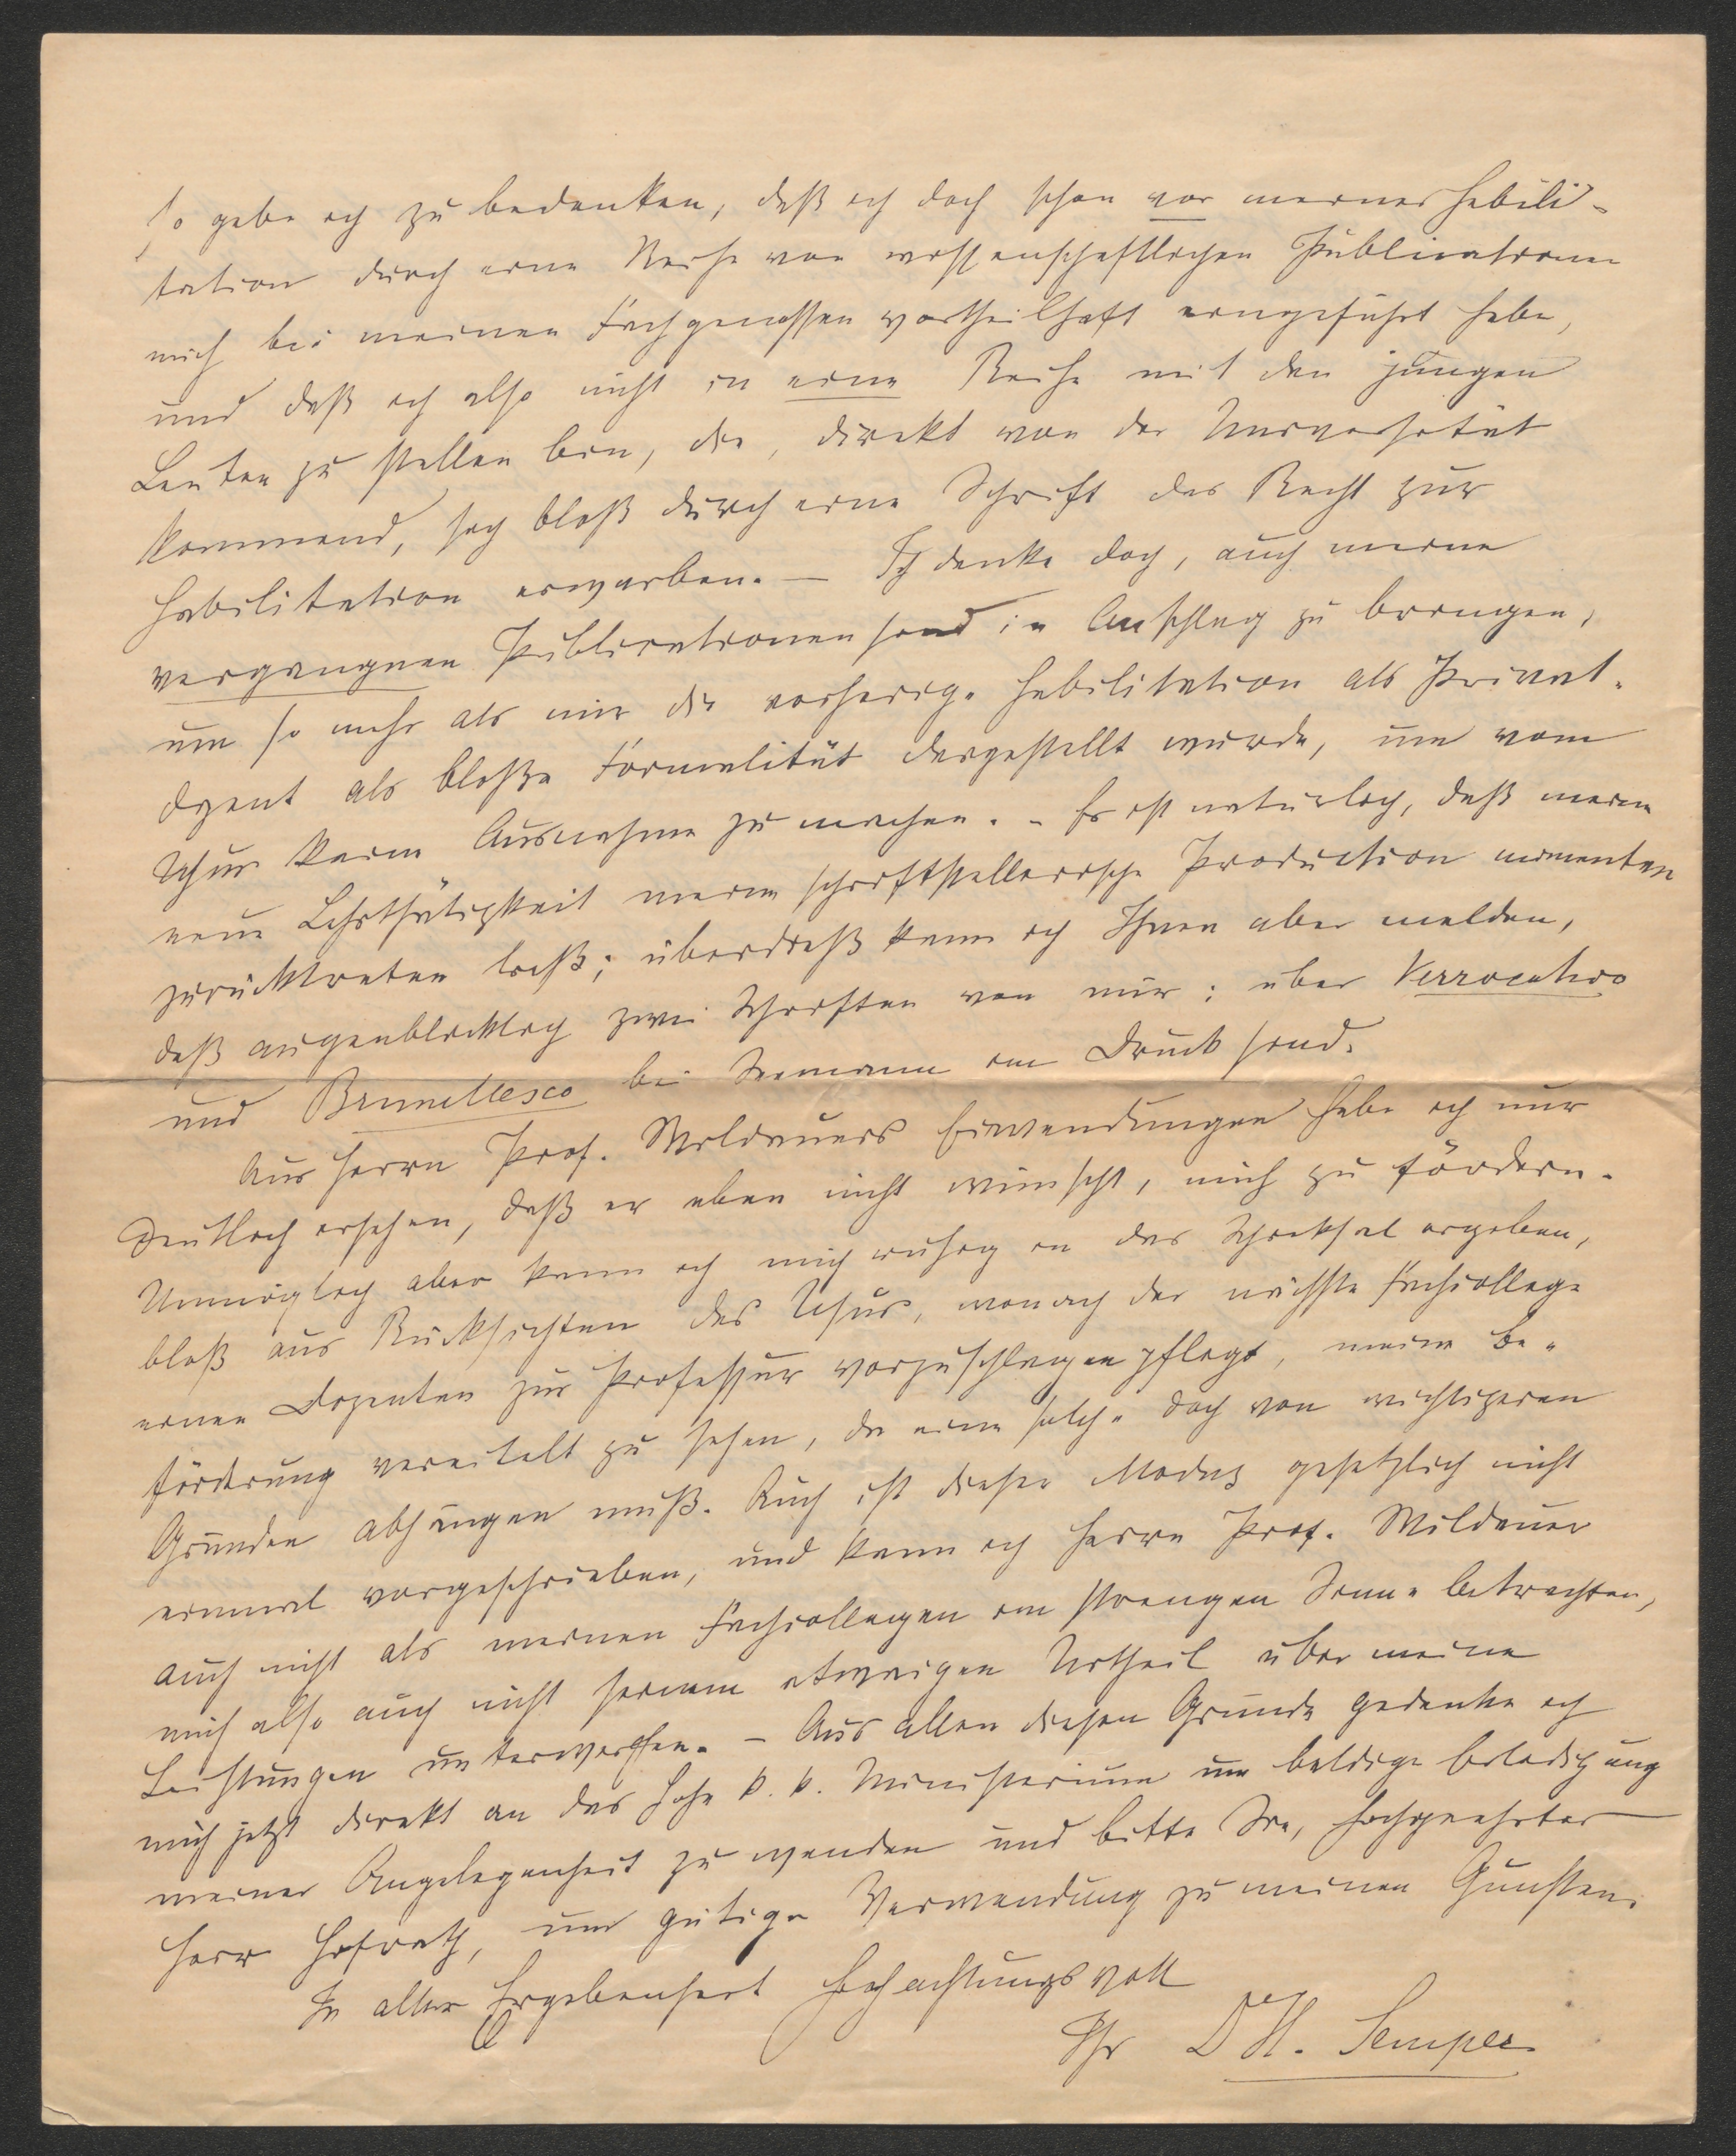 so gebe ich zu bedenken, daß ich doch schon vor meiner Habili-
tation durch eine Reihe von wissenschaftlichen Publicationen
mich bei meinen Fachgenossen vortheilhaft eingeführt habe,
und daß ich also nicht in eine Reihe mit den jungen
Leuten zu stellen bin, die, direkt von der Universität
kommend, sich bloß durch eine Schrift das Recht zur
Habilitation erwarben. – Ich denke doch, auch meine
vergangnen Publicationen sind in Anschlag zu bringen,
um so mehr als mir die vorherige Habilitation als Privat-
dozent als bloße Formalität dargestellt wurde, um vom
Usus keine Ausnahme zu machen. – Es ist natürlich, daß meine
neue Lehrthätigkeit meine schriftstellerische Production momentan
zurücktreten ließ; überdieß kann ich Ihnen aber melden,
daß augenblicklich zwei Schriften von mir: über Verrocchio
und Brunellesco bei Seemann im Druck sind.
Aus Herrn Prof. Wildauers Einwendungen habe ich nur
deutlich ersehen, daß er eben nicht wünscht, mich zu fördern.
Unmöglich aber kann ich mich ruhig in das Schicksal ergeben,
bloß aus Rücksichten des Usus, wonach der nächste Fachcollege
einen Dozenten zur Professur vorzuschlagen pflegt, meine Be-
förderung vereitelt zu sehen, da eine solche doch von wichtigeren
Gründen abhängen muß. Auch ist dieser Modus gesetzlich nicht
einmal vorgeschrieben, und kann ich Herrn Prof. Wildauer
auch nicht als meinen Fachcollegen im strengen Sinne betrachten,
mich also auch nicht seinem etwaigen Urtheil über meine
Leistungen unterwerfen. – Aus allen diesen Gründen gedenke ich
mich jetzt direkt an das hohe k. k. Ministerium um baldige Erledigung
meiner Angelegenheit zu wenden und bitte Sie, hochgeehrter
Herr Hofrath, um gütige Verwendung zu meinen Gunsten.
In aller Ergebenheit hochachtungsvoll
Ihr D H. Semper